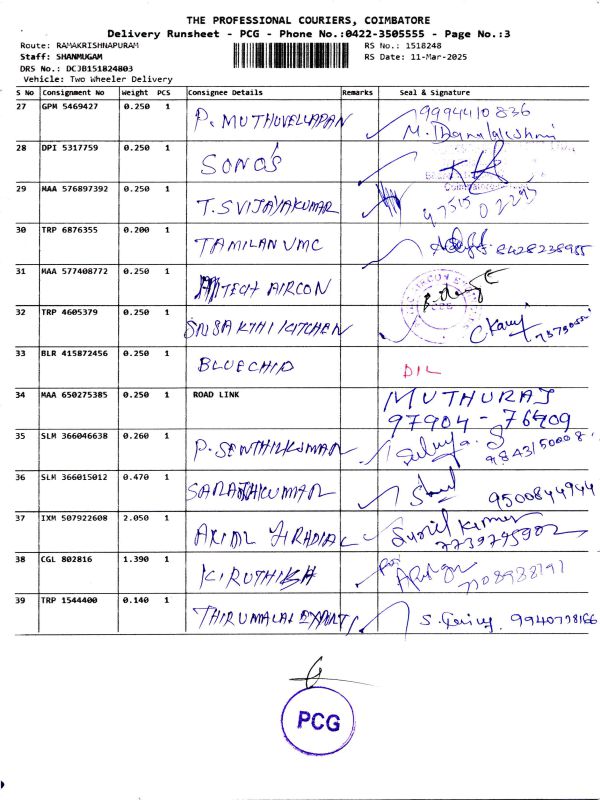 THE PROFESSIONAL COURIERS, COIMBATORE
Delivery Runsheet - PCG - Phone No.:0422-3505555 - Page No.:3
Route: RAMAKRISHNAPURAM RS No.: 1518248
Staff: SHANMUGAM RS Date: 11-Mar-2025
DRS No.: DCJB151824803
Vehicle: Two Wheeler Delivery
S No Consignment No Weight PCS Consignee Details Remarks Seal & Signature
27 GPM 5469427 0.250 1 P. MUTHUVELLAPAN 9994410836
M. Dhanalakshmi
28 DPI 5317759 0.250 1 SONO'S
29 MAA 576897392 0.250 1 T.S VIJAYAKUMAR 97515 02295
30 TRP 6876355 0.200 1 TAMILAN VMC 8428238985
31 MAA 577408772 0.250 1 TECH AIRCON
32 TRP 4605379 0.250 1 SRI SAKTHI KITCHEN
33 BLR 415872456 0.250 1 BLUECHIP DIL
34 MAA 650275385 0.250 1 ROAD LINK MUTHURAJ
97904 - 76409
35 SLM 366046638 0.260 1 P. SENTHILKUMAR 9843150008
36 SLM 366015012 0.470 1 SARATHKUMAR 9500844944
37 IXM 507922608 2.050 1 AXIAL Sunil Kumar
7739745902
38 CGL 802816 1.390 1 KIRUTHIKA
39 TRP 1544400 0.140 1 THIRUMALAI EXPORTS S. 9940778166
PCG